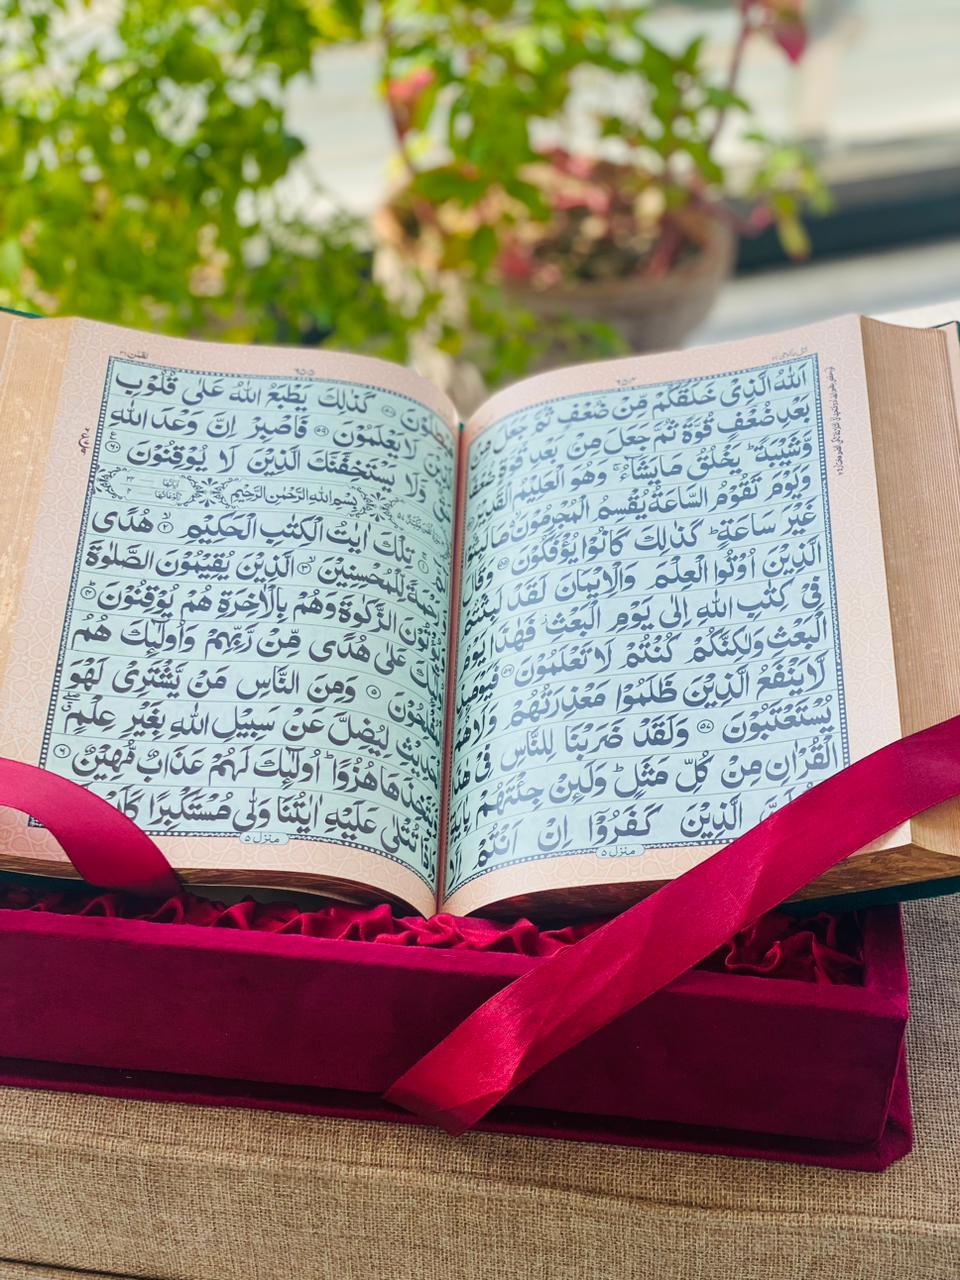 ٦٥٤
اَللّٰهُ الَّذِىْ خَلَقَكُمْ مِّنْ ضَعْفٍ ثُمَّ جَعَلَ مِنْۢ
بَعْدِ ضَعْفٍ قُوَّةً ثُمَّ جَعَلَ مِنْۢ بَعْدِ قُوَّةٍ ضَعْفًا
وَّشَيْبَةً ؕ يَخْلُقُ مَا يَشَآءُ ۚ وَهُوَ الْعَلِيْمُ الْقَدِيْرُ
وَيَوْمَ تَقُوْمُ السَّاعَةُ يُقْسِمُ الْمُجْرِمُوْنَ مَا لَبِثُوْا
غَيْرَ سَاعَةٍ ؕ كَذٰلِكَ كَانُوْا يُؤْفَكُوْنَ ۵۵ وَقَالَ
الَّذِيْنَ اُوْتُوا الْعِلْمَ وَالْاِيْمَانَ لَقَدْ لَبِثْتُمْ
فِىْ كِتٰبِ اللّٰهِ اِلٰى يَوْمِ الْبَعْثِ ؗ فَهٰذَا يَوْمُ
الْبَعْثِ وَلٰكِنَّكُمْ كُنْتُمْ لَا تَعْلَمُوْنَ ۵۶ فَيَوْمَئِذٍ
لَّا يَنْفَعُ الَّذِيْنَ ظَلَمُوْا مَعْذِرَتُهُمْ وَلَا هُمْ
يُسْتَعْتَبُوْنَ ۵۷ وَلَقَدْ ضَرَبْنَا لِلنَّاسِ فِىْ هٰذَا
الْقُرْاٰنِ مِنْ كُلِّ مَثَلٍ ؕ وَلَئِنْ جِئْتَهُمْ بِاٰيَةٍ
الَّذِيْنَ كَفَرُوْۤا اِنْ اَنْتُمْ اِلَّا
منزل ۵
لقمٰن ٣١
٦٥٥
مُبْطِلُوْنَ ۵۸ كَذٰلِكَ يَطْبَعُ اللّٰهُ عَلٰى قُلُوْبِ
الَّذِيْنَ لَا يَعْلَمُوْنَ ۵۹ فَاصْبِرْ اِنَّ وَعْدَ اللّٰهِ
حَقٌّ وَّلَا يَسْتَخِفَّنَّكَ الَّذِيْنَ لَا يُوْقِنُوْنَ ۶۰
بِسْمِ اللّٰهِ الرَّحْمٰنِ الرَّحِيْمِ
الٓمّٓ ۱ تِلْكَ اٰيٰتُ الْكِتٰبِ الْحَكِيْمِ ۲ هُدًى
وَّرَحْمَةً لِّلْمُحْسِنِيْنَ ۳ الَّذِيْنَ يُقِيْمُوْنَ الصَّلٰوةَ
وَيُؤْتُوْنَ الزَّكٰوةَ وَهُمْ بِالْاٰخِرَةِ هُمْ يُوْقِنُوْنَ ۴
اُولٰٓئِكَ عَلٰى هُدًى مِّنْ رَّبِّهِمْ وَاُولٰٓئِكَ هُمُ
الْمُفْلِحُوْنَ ۵ وَمِنَ النَّاسِ مَنْ يَّشْتَرِىْ لَهْوَ
الْحَدِيْثِ لِيُضِلَّ عَنْ سَبِيْلِ اللّٰهِ بِغَيْرِ عِلْمٍ ۖ
وَّيَتَّخِذَهَا هُزُوًا ؕ اُولٰٓئِكَ لَهُمْ عَذَابٌ مُّهِيْنٌ ۶
وَاِذَا تُتْلٰى عَلَيْهِ اٰيٰتُنَا وَلّٰى مُسْتَكْبِرًا كَاَنْ
منزل ۵